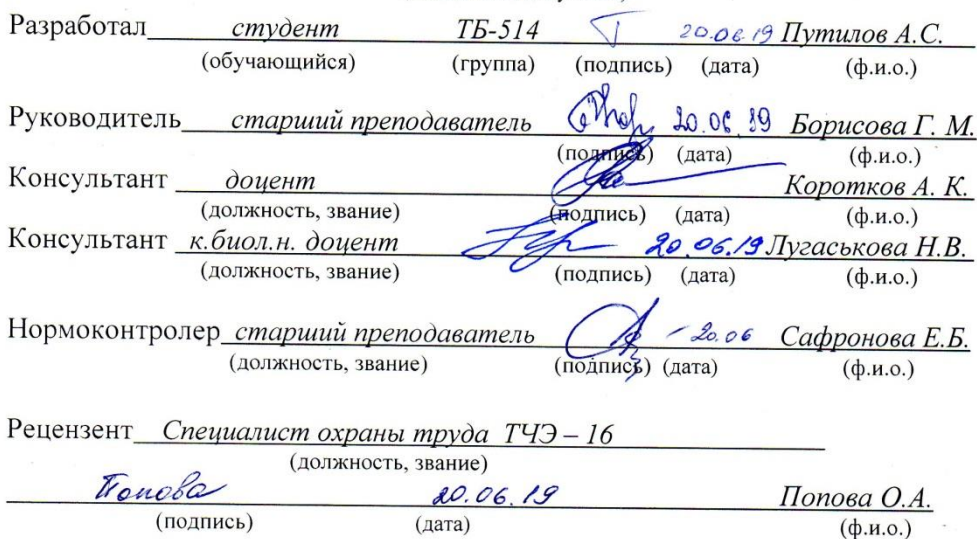 Разработал студент ТБ-514 20.06.19 Путилов А.С.
(обучающийся) (группа) (подпись) (дата) (ф.и.о.)
Руководитель старший преподаватель 20.06.19 Борисова Г. М.
(подпись) (дата) (ф.и.о.)
Консультант доцент Коротков А. К.
(должность, звание) (подпись) (дата) (ф.и.о.)
Консультант к.биол.н. доцент 20.06.19 Лугаськова Н.В.
(должность, звание) (подпись) (дата) (ф.и.о.)
Нормоконтролер старший преподаватель 20.06 Сафронова Е.Б.
(должность, звание) (подпись) (дата) (ф.и.о.)
Рецензент Специалист охраны труда ТЧЭ – 16
(должность, звание)
Попова 20.06.19 Попова О.А.
(подпись) (дата) (ф.и.о.)